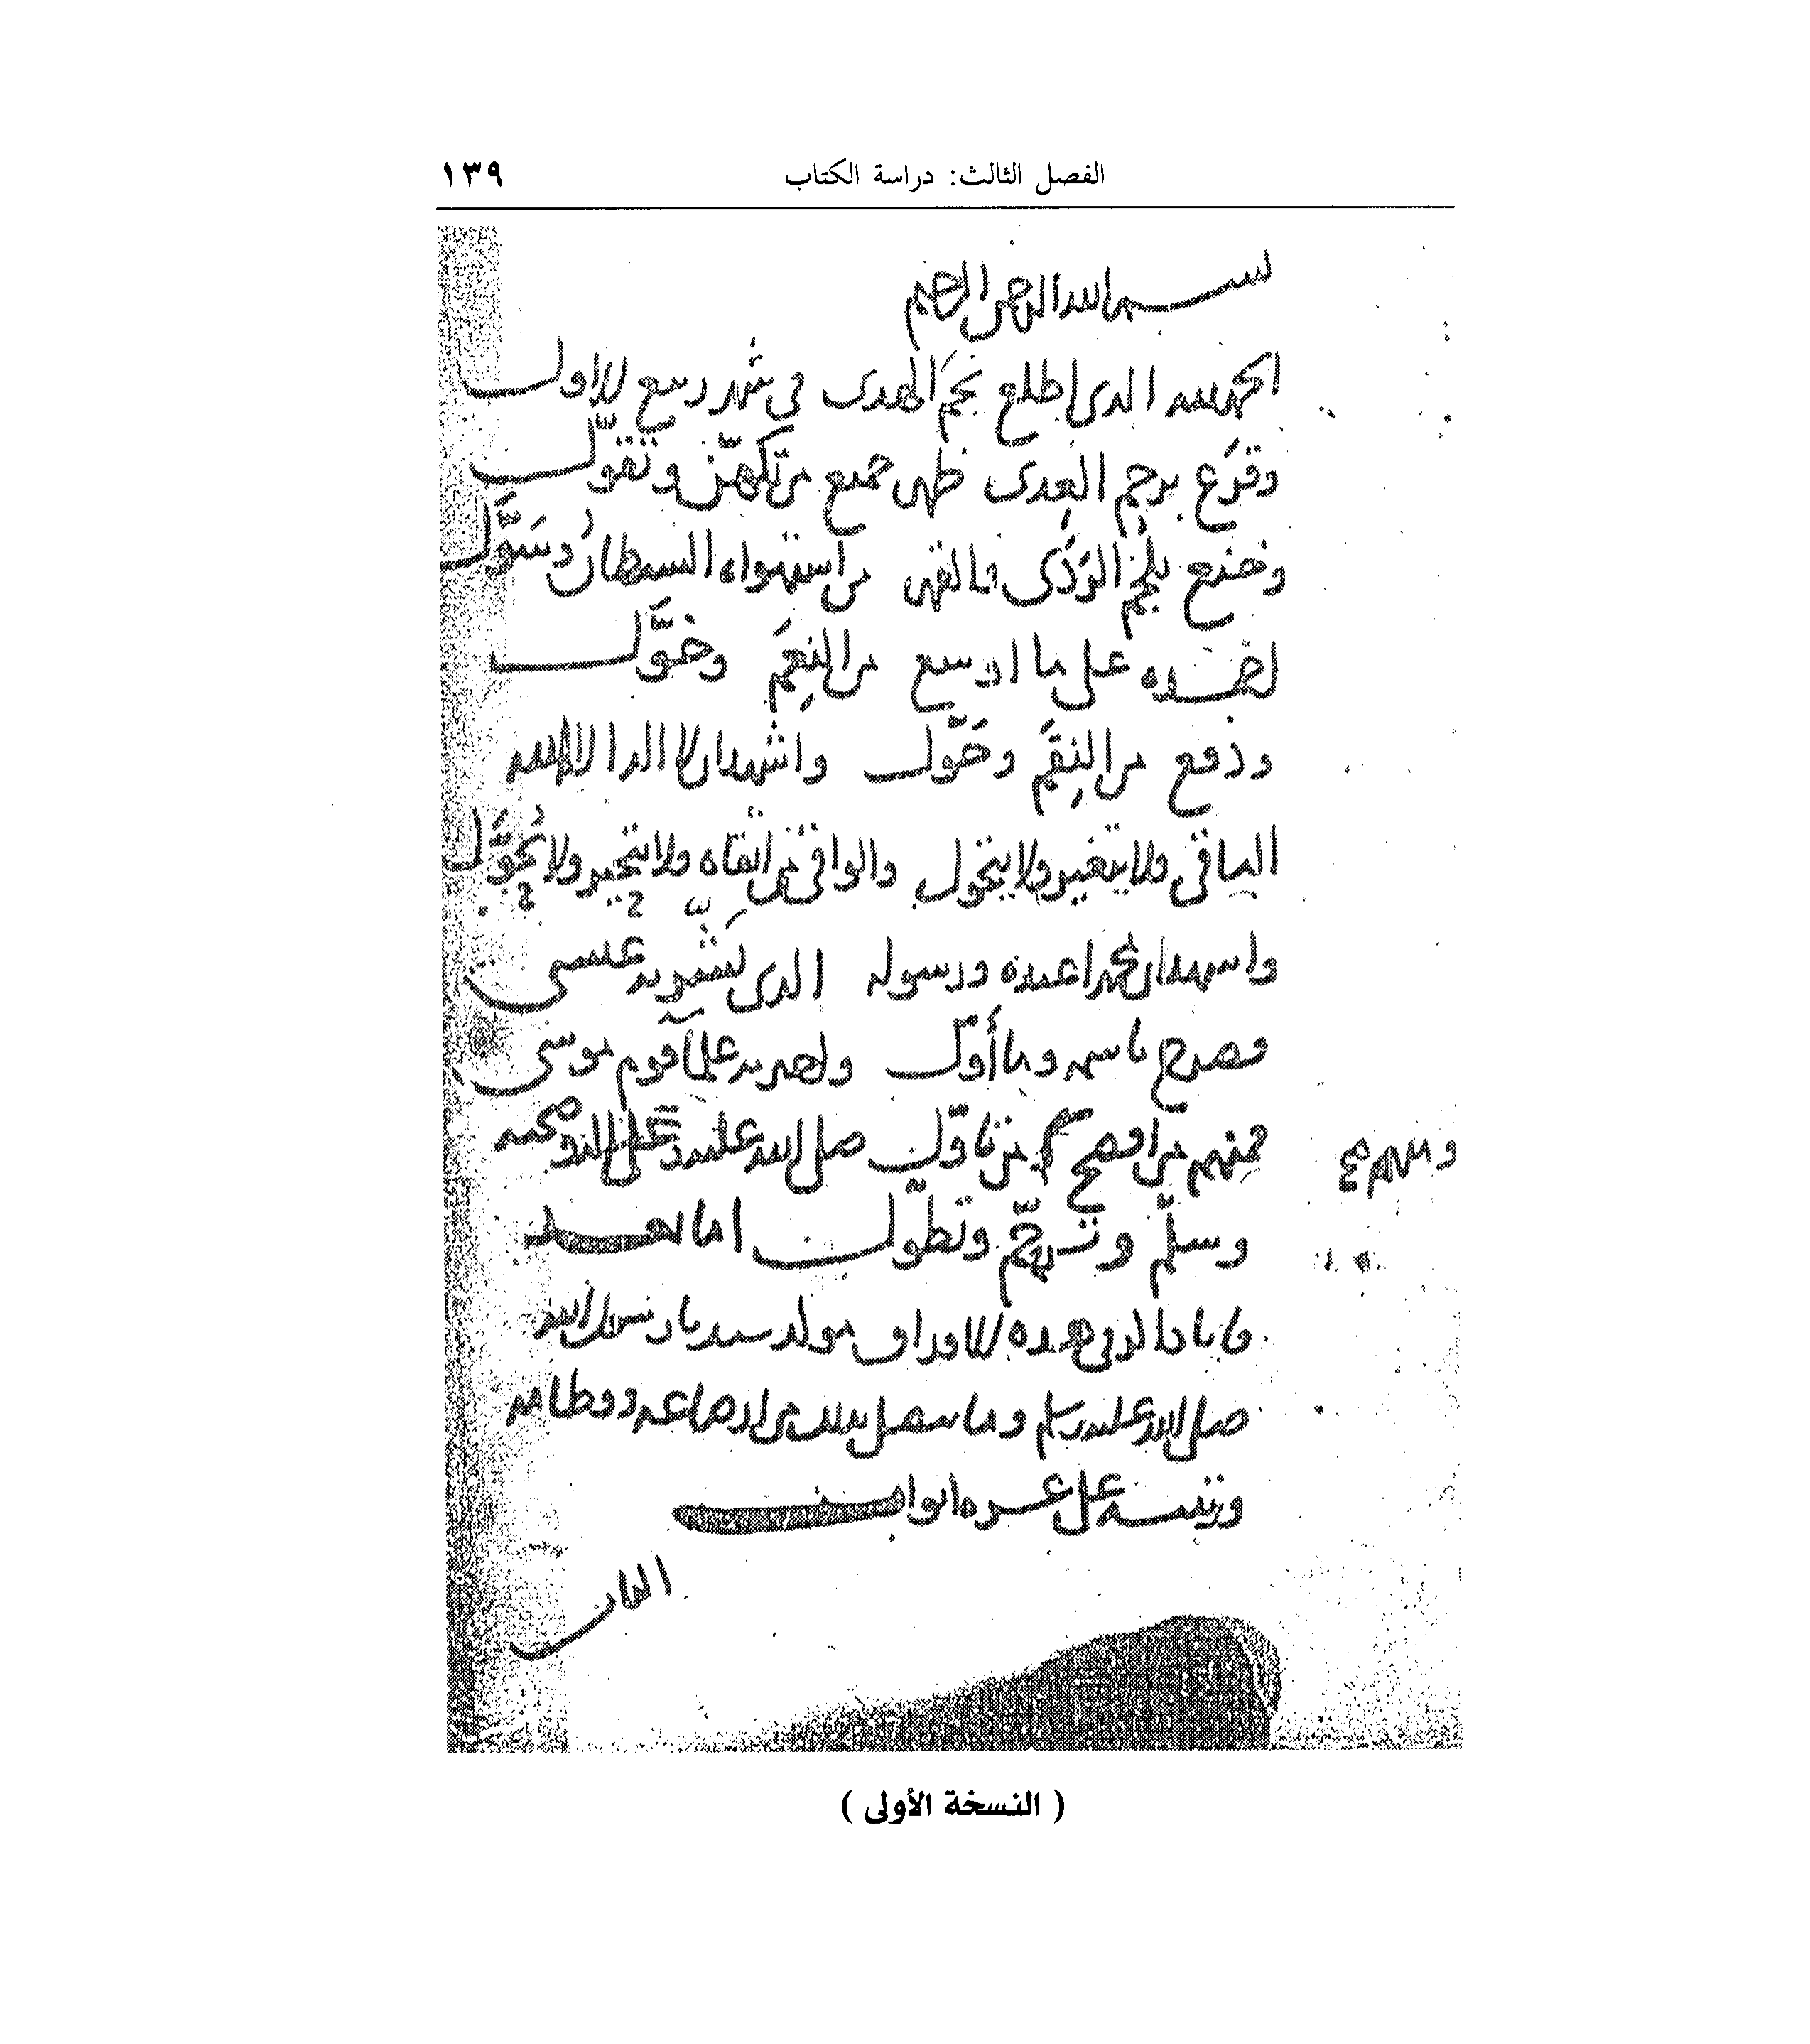 الفصل الثالث: دراسة الكتاب ١٣٩
بسم الله الرحمن الرحيم
الحمد لله الذى اطلع نجم الهدى في شهر ربيع الاول
وقرع برجم العدى ظهر جميع من تكهّن وتقوّل
وخنع بلجم الرّدى فالقهر من استهواه الشيطان وسَوَّل
احمده على ما اوسع من النِعَم وخَوَّل
ودفع من النِقَم وحَوَّل واشهد ان لا اله الا الله
الباقي ولا يتغير ولا يتحول والواقي من اتقاه ولا يتحير ولا
واشهد ان محمدا عبده ورسوله الذى بَشَّر به عيسى
وصرح باسمه وما أوّل و به علما قوم موسى
فمنهم من افصح و من تاوّل صلى الله عليه وعلى اله وصحبه
وسلّم وترحّم وتطول اما بعد
فانا ذاكر في هذه الاوراق مولد سيدنا رسول الله
صلى الله عليه وسلم وما يتصل بذلك من ارضاعه وفطامه
ورتبته على عشره ابواب
( النسخة الأولى )